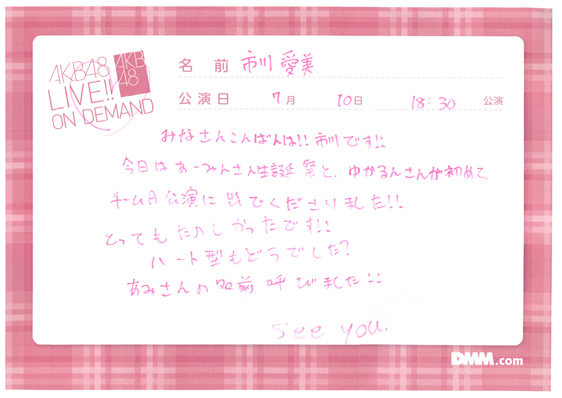 AKB48
LIVE!!
ON DEMAND
AKB
48
名前 市川愛美
公演日 7月 10日 18:30 公演
みなさんこんばんは!! 市川です!!
今日はあーみんさん生誕祭と、ゆかるんさんが初めて
チームA公演に出てくださりました!!
とってもたのしかったです!!
ハート型もどうでした?
あみさんの名前呼びました!!
see you.
DMM.com